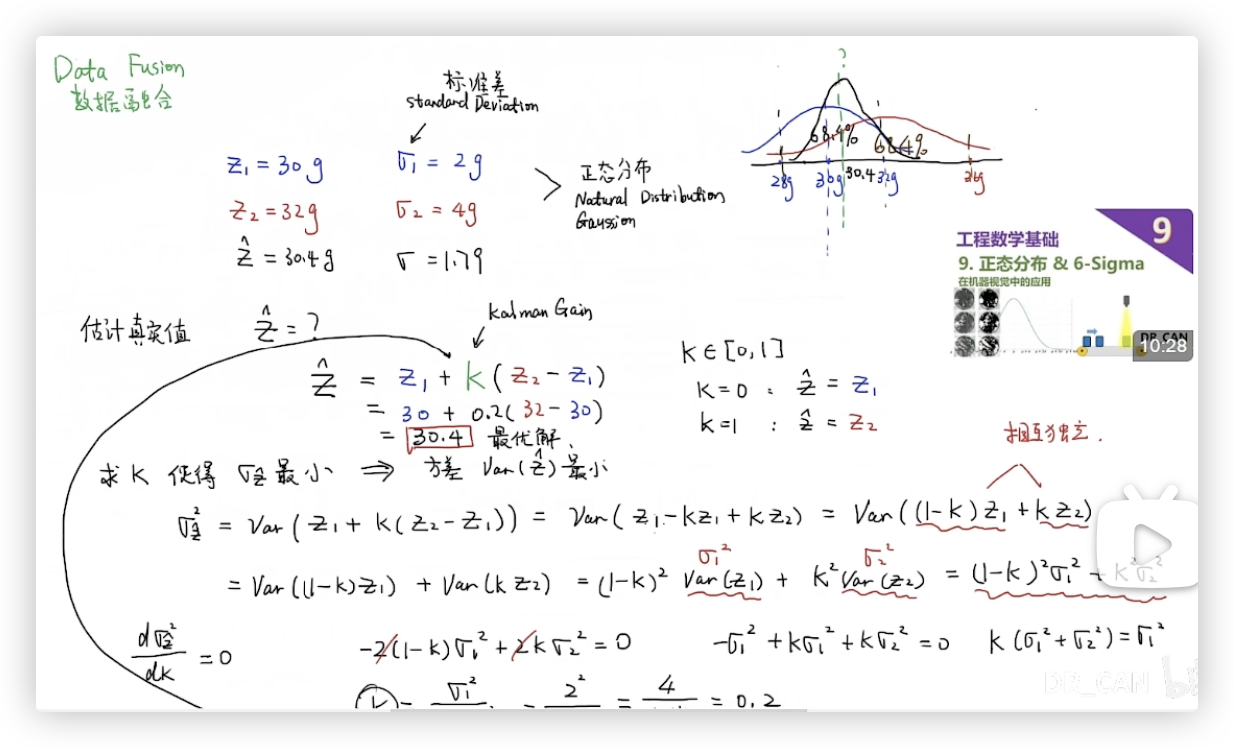 Data Fusion
数据融合
标准差
standard Deviation
z₁ = 30g σ₁ = 2g
z₂ = 32g σ₂ = 4g
ẑ = 30.4g σ = 1.79
正态分布
Natural Distribution
Gaussion
?
68.4% 68.4%
28g 30g 30.4 32g 36g
工程数学基础
9
9. 正态分布 & 6-Sigma
在机器视觉中的应用
DR_CAN
10:28
估计真实值 ẑ = ?
Kalman Gain
ẑ = z₁ + k(z₂ - z₁)
= 30 + 0.2(32 - 30)
= 30.4 最优解.
k ∈ [0,1]
k=0 : ẑ = z₁
k=1 : ẑ = z₂
相互独立.
求 k 使得 σẑ 最小 ⇒ 方差 Var(ẑ) 最小
σẑ² = Var(z₁ + k(z₂ - z₁)) = Var(z₁ - kz₁ + kz₂) = Var((1-k)z₁ + kz₂)
σ₁² σ₂²
= Var((1-k)z₁) + Var(kz₂) = (1-k)² Var(z₁) + k² Var(z₂) = (1-k)²σ₁² + k²σ₂²
dσẑ²/dk = 0 -2(1-k)σ₁² + 2kσ₂² = 0 -σ₁² + kσ₁² + kσ₂² = 0 k(σ₁² + σ₂²) = σ₁²
DR_CAN
k = σ₁² = 2² = 4 = 0.2